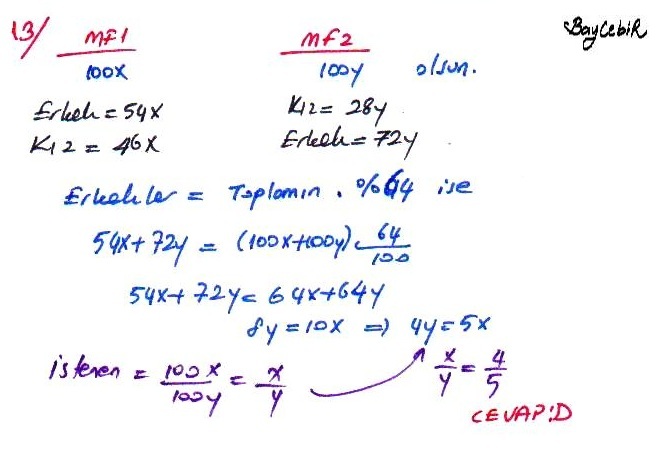 13/ MF1 MF2 BayCebiR
100x 100y olsun.
Erkek = 54x Kız = 28y
Kız = 46x Erkek = 72y
Erkekler = Toplamın . %64 ise
54x + 72y = (100x+100y) . 64/100
54x + 72y = 64x + 64y
8y = 10x ⇒ 4y = 5x
istenen = 100x/100y = x/y x/y = 4/5
CEVAP:D